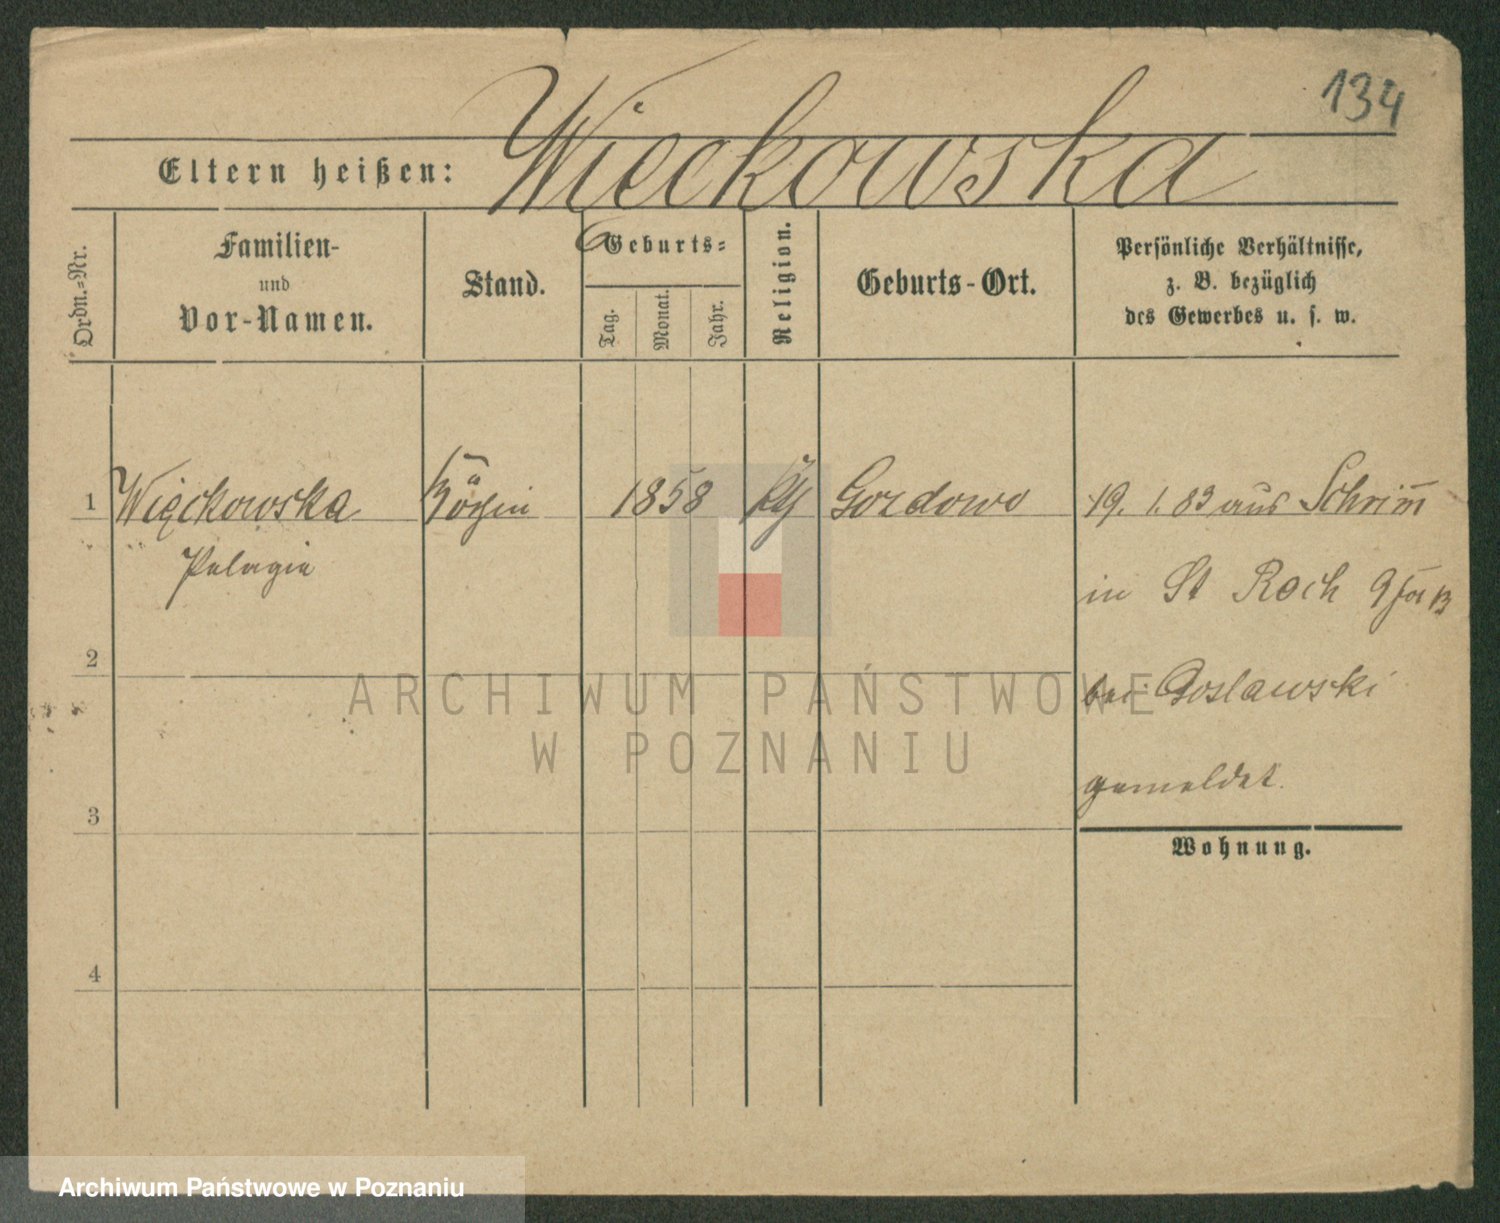 134
Eltern heißen: Więckowska
Ordn.=Nr.
Familien-
und
Vor-Namen.
Stand.
Geburts=
Tag.
Monat.
Jahr.
Religion.
Geburts-Ort.
Persönliche Verhältnisse,
z. B. bezüglich
des Gewerbes u. s. w.
1 Więckowska Köchin 1858 Gozdowo 19. 1. 83 aus Schrimm
Pelagie
in St Roch
2
bei Goslawski
gemeldet.
3
Wohnung.
4
ARCHIWUM PAŃSTWOWE
W POZNANIU
Archiwum Państwowe w Poznaniu